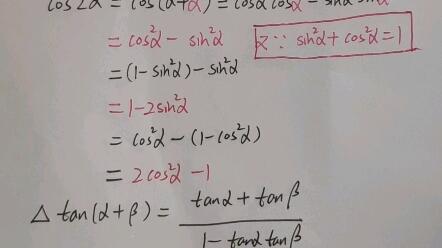 cos2α = cos(α+α) = cosα cosα - sinα sinα
= cos²α - sin²α 又∵ sin²α + cos²α = 1
= (1-sin²α) - sin²α
= 1-2sin²α
= cos²α - (1-cos²α)
= 2cos²α - 1
△ tan(α+β) = tanα + tanβ / 1 - tanα tanβ